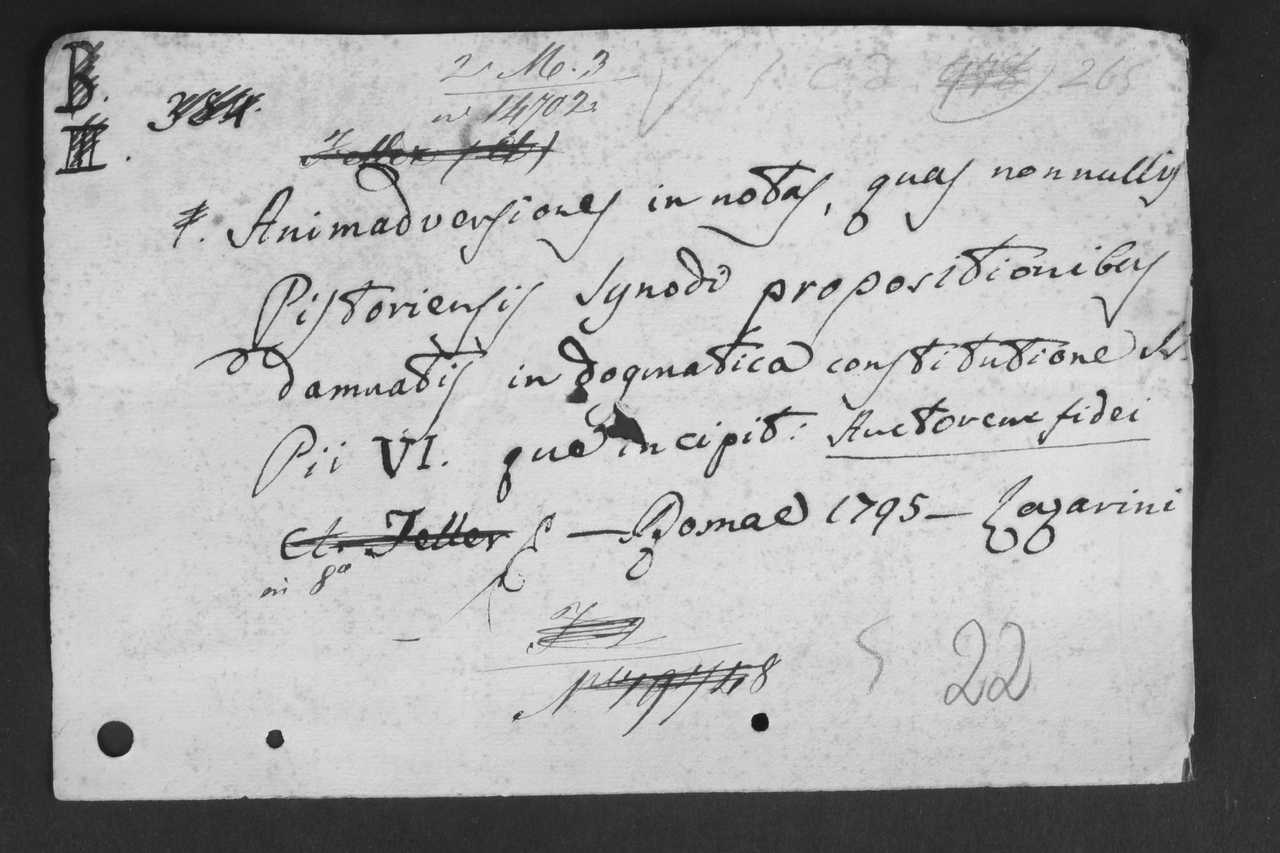 B.
III.
384.
2 M. 3
n° 14702.
1 C. d. 478) 265
Feller (Ct)
‡. Animadversiones in notas, quas nonnullis
Pistoriensis Synodi propositionibus
damnatis in dogmatica constitutione
Pii VI. que incipit: Auctorem fidei
Ct. Feller — Romae 1795 — Lazarini
in 8°
22